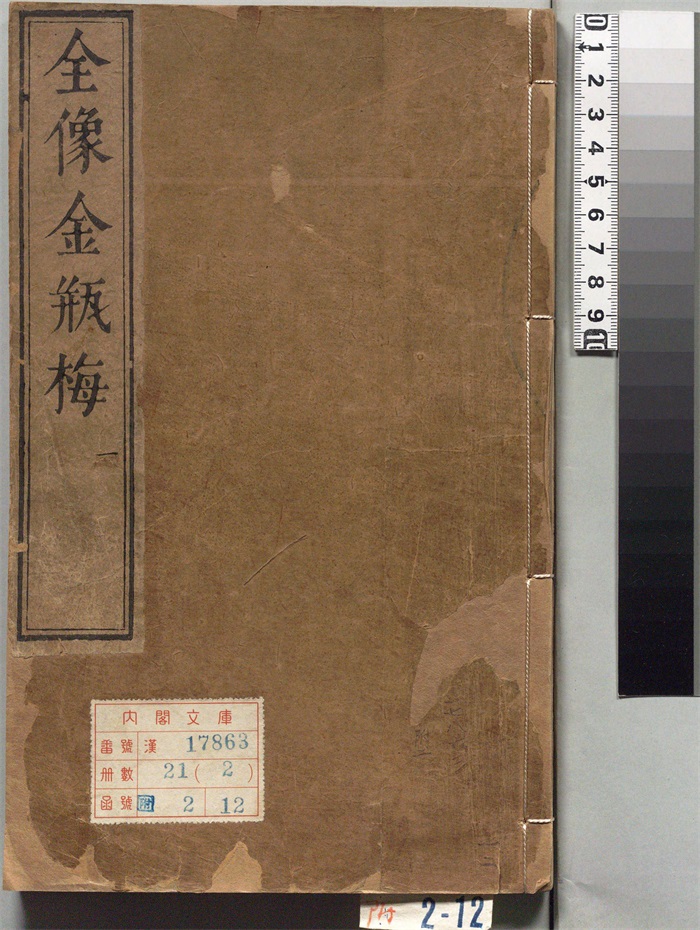 全像金瓶梅
一
内閣文庫
番號 漢 17863
冊數 21(2)
函號 附 2 12
附 2-12
0 1 2 3 4 5 6 7 8 9 10